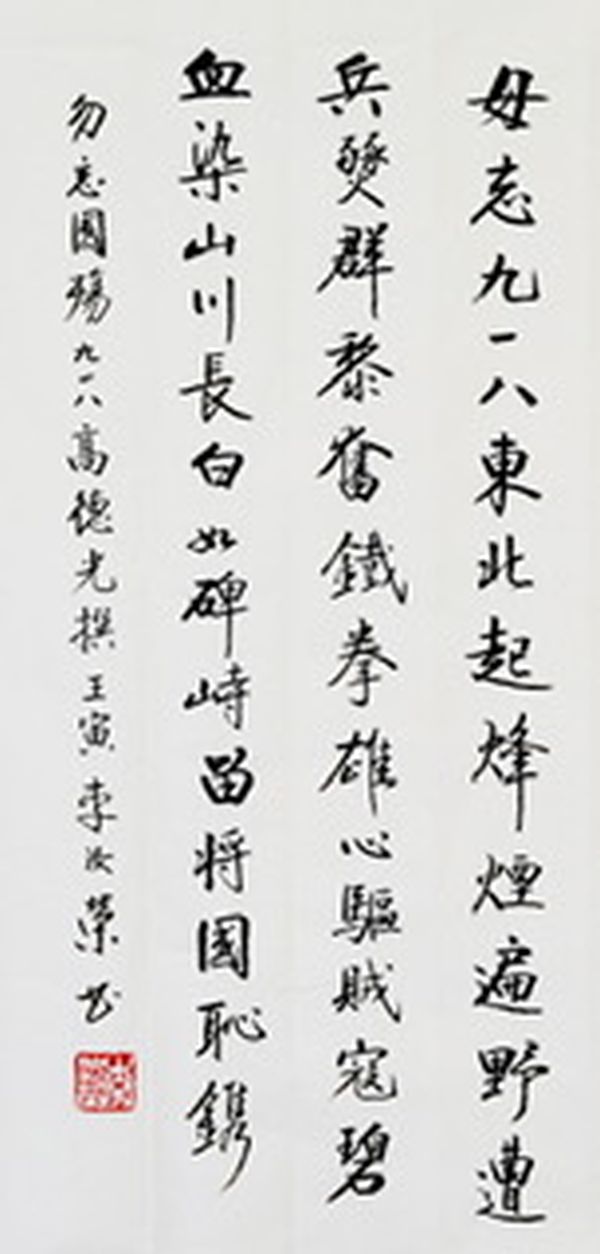 毋忘九一八東北起烽煙遍野遭
兵燹群黎奮鐵拳雄心驅賊寇碧
血染山川長白如碑峙留将國恥鐫
勿忘國殤九一八高德光撰壬寅李汝榮书